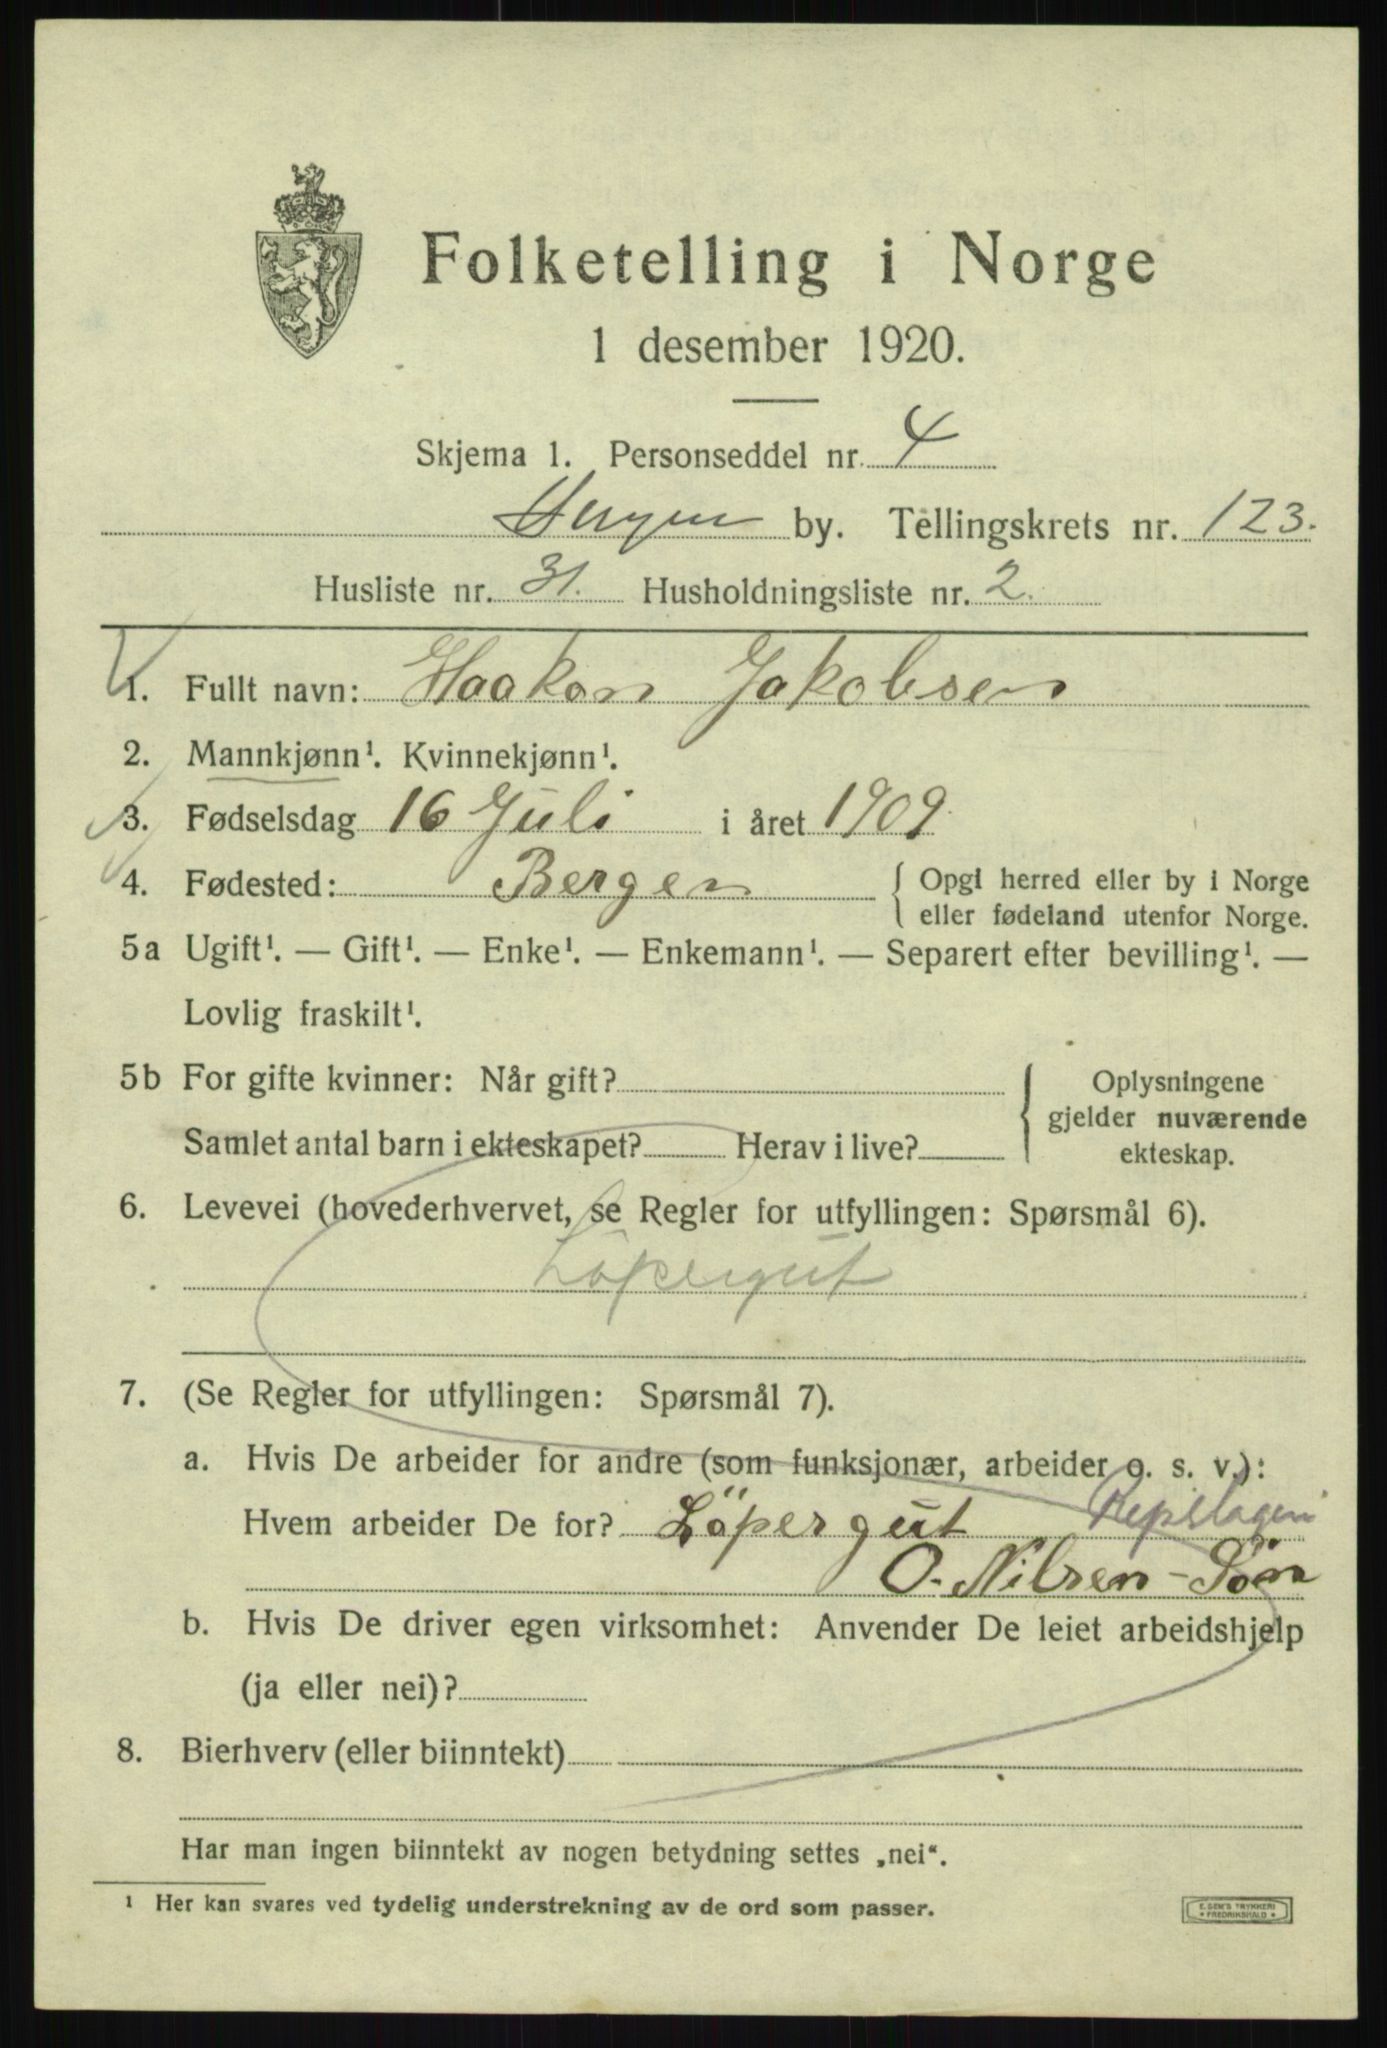 Folketelling i Norge
1 desember 1920.
Skjema 1. Personseddel nr. 4
Bergen by. Tellingskrets nr. 123.
Husliste nr. 31. Husholdningsliste nr. 2.
1. Fullt navn: Haakon Jakobsen
2. Mannkjønn¹. Kvinnekjønn¹.
3. Fødselsdag 16 Juli i året 1909.
4. Fødested: Bergen { Opgi herred eller by i Norge
eller fødeland utenfor Norge.
5a Ugift¹. — Gift¹. — Enke¹. — Enkemann¹. — Separert efter bevilling¹. —
Lovlig fraskilt¹.
5b For gifte kvinner: Når gift? } Oplysningene
gjelder nuværende
Samlet antal barn i ekteskapet? Herav i live? ekteskap.
6. Levevei (hovederhvervet, se Regler for utfyllingen: Spørsmål 6).
Löpergut
7. (Se Regler for utfyllingen: Spørsmål 7).
a. Hvis De arbeider for andre (som funksjonær, arbeider o. s. v.):
Hvem arbeider De for? Löpergut Repslageri
O. Nilsen - Søn
b. Hvis De driver egen virksomhet: Anvender De leiet arbeidshjelp
(ja eller nei)?
8. Bierhverv (eller biinntekt)
Har man ingen biinntekt av nogen betydning settes „nei“.
¹ Her kan svares ved tydelig understrekning av de ord som passer.
E. SEM'S TRYKKERI
* FREDRIKSHALD *